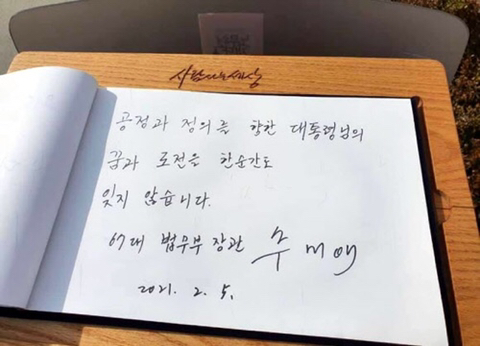 사람사는세상
공정과 정의를 향한 대통령님의
꿈과 도전을 한순간도
잊지 않습니다.
67대 법무부 장관 추미애
2021. 2. 5.